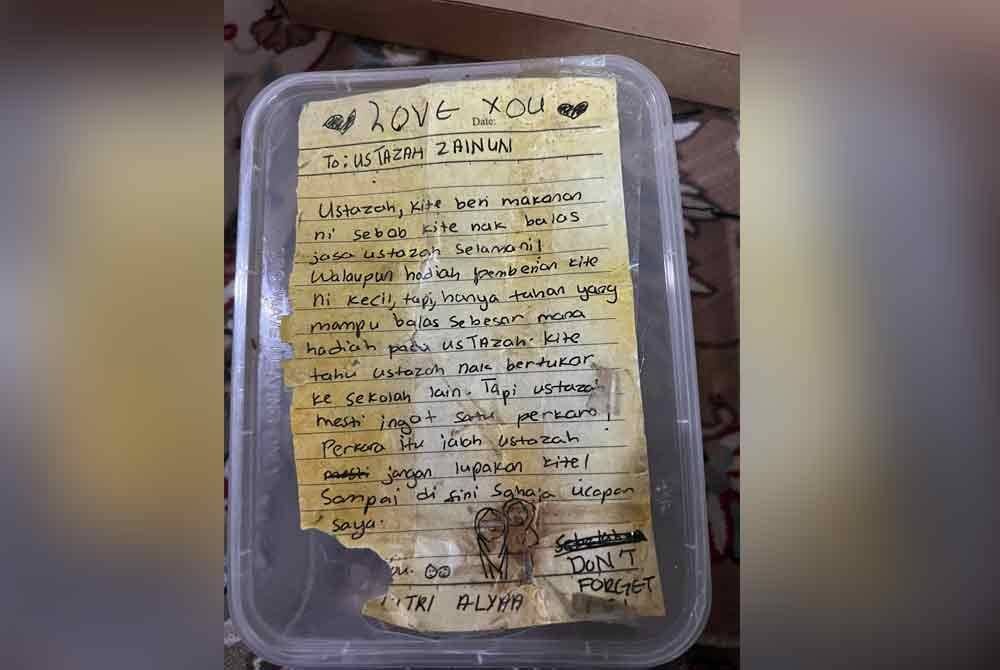 LOVE YOU
Date:
To: USTAZAH ZAINUN
Ustazah, kite beri makanan
ni sebab kite nak balas
jasa ustazah selamani!
Walaupun hadiah pemberian kite
ni kecil, tapi, hanya tuhan yang
mampu balas sebesar mana
hadiah pada USTAZah. kite
tahu ustazah nak bertukar
ke sekolah lain. Tapi ustazah
mesti ingat satu perkara!
Perkara itu ialah ustazah
mesti jangan lupakan kite!
Sampai di sini sahaja ucapan
saya.
DON'T
FORGET
TRI ALYAA